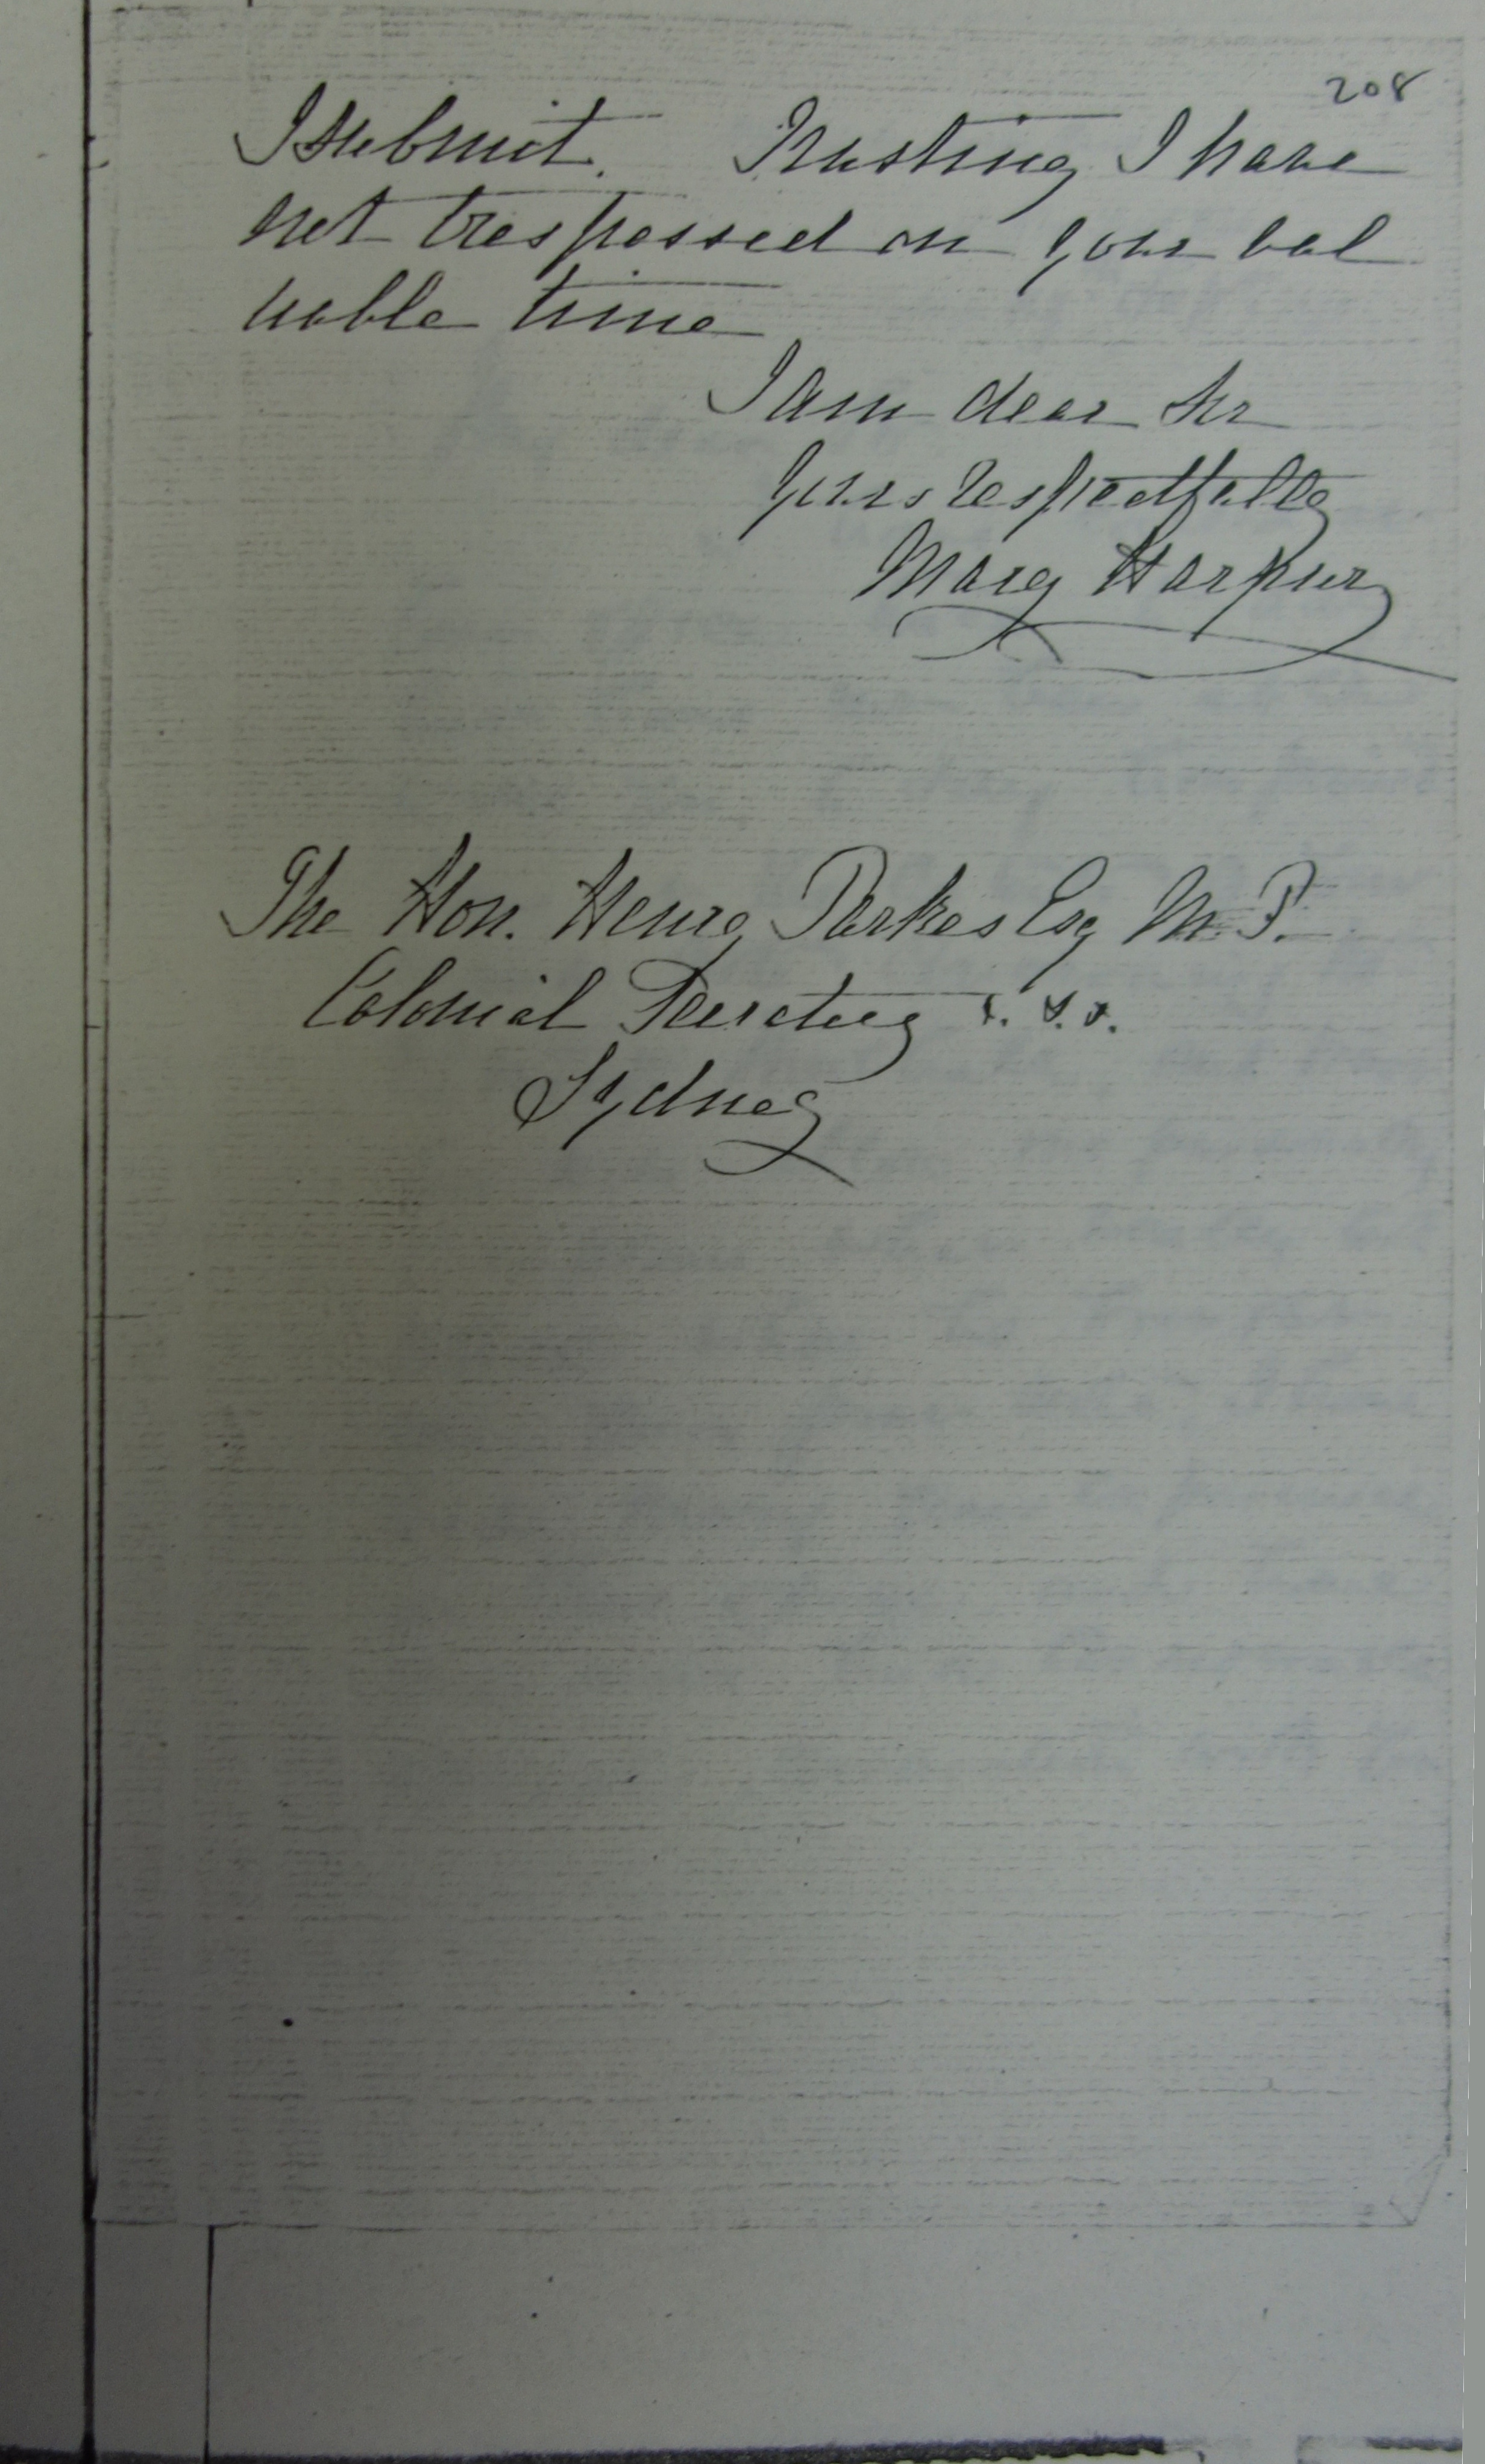 208
I submit. Trusting I have
not trespassed on your val
uable time
I am dear Sir
Yours respectfully
Mary Harpur
The Hon. Henry Parkes Esq M.P.
Colonial Secretary &. &. &.
Sydney